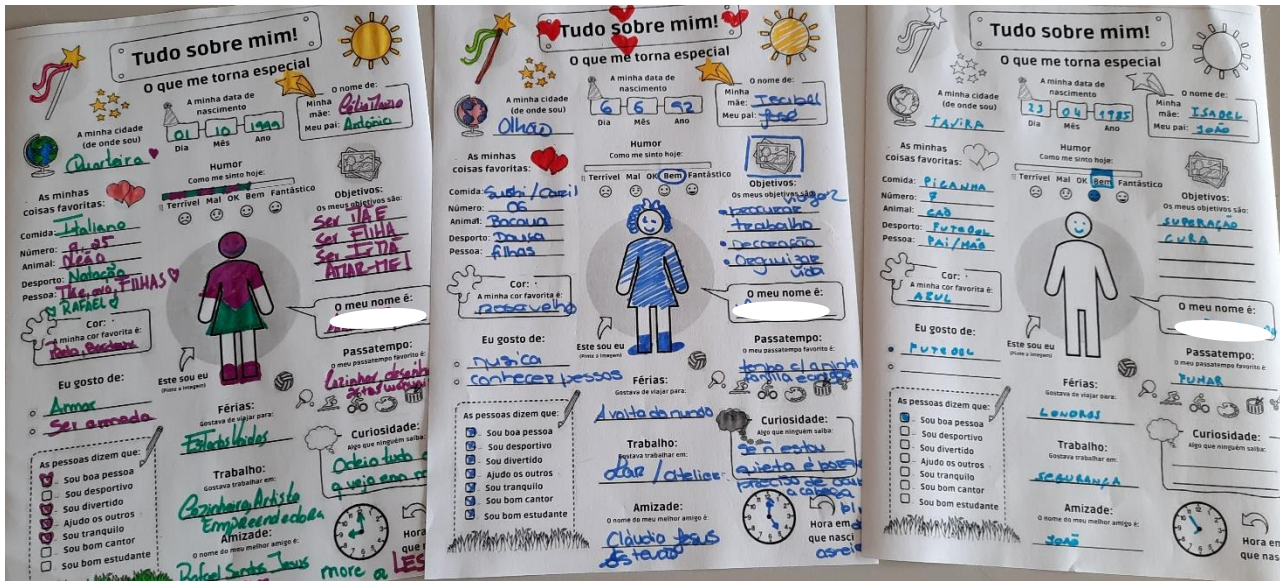 Tudo sobre mim!
O que me torna especial
A minha cidade
(de onde sou)
Quarteira
A minha data de
nascimento
01 10 1999
Dia Mês Ano
O nome de:
Minha
mãe:
Meu pai: António
As minhas
coisas favoritas:
Comida: Italiano
Número: 9, 25
Animal: Leão
Desporto: Natação
Pessoa: FILHAS
RAFAEL
Humor
Como me sinto hoje:
Terrível Mal OK Bem Fantástico
Objetivos:
Os meus objetivos são:
Ser MÃE
Ser FILHA
Ser IRMÃ
AMAR-ME!
Cor:
A minha cor favorita é:
Este sou eu
(Pinte a imagem)
O meu nome é:
Eu gosto de:
Amar
Ser amada
Passatempo:
O meu passatempo favorito é:
Cozinhar, desenhar
Férias:
Gostava de viajar para:
Estados Unidos
As pessoas dizem que:
Sou boa pessoa
Sou desportivo
Sou divertido
Ajudo os outros
Sou tranquilo
Sou bom cantor
Sou bom estudante
Trabalho:
Gostava trabalhar em:
Cozinheira, Artista
Empreendedora
Curiosidade:
Algo que ninguém saiba:
Odeio tudo o
Amizade:
O nome do meu melhor amigo é:
Rafael Santos Jesus
Hora em
que
Tudo sobre mim!
O que me torna especial
A minha cidade
(de onde sou)
Olhão
A minha data de
nascimento
6 6 92
Dia Mês Ano
O nome de:
Minha
mãe:
Meu pai: José
As minhas
coisas favoritas:
Comida: Sushi/Caril
Número: 06
Animal:
Desporto: Dança
Pessoa: filhos
Humor
Como me sinto hoje:
Terrível Mal OK Bem Fantástico
Objetivos:
Os meus objetivos são:
• procurar
trabalho
• Decoração
• Organizar
vida
Cor:
A minha cor favorita é:
Este sou eu
(Pinte a imagem)
O meu nome é:
Eu gosto de:
Musica
conhecer pessoas
Passatempo:
O meu passatempo favorito é:
Férias:
Gostava de viajar para:
A volta do mundo
As pessoas dizem que:
Sou boa pessoa
Sou desportivo
Sou divertido
Ajudo os outros
Sou tranquilo
Sou bom cantor
Sou bom estudante
Trabalho:
Gostava trabalhar em:
Lar/atelier
Curiosidade:
Algo que ninguém saiba:
Se n estou
quieta é porque
preciso de
a cabeça
Amizade:
O nome do meu melhor amigo é:
Cláudio Jesus
Estevão
Hora em
que nasci
Tudo sobre mim!
O que me torna especial
A minha cidade
(de onde sou)
TAVIRA
A minha data de
nascimento
23 04 1985
Dia Mês Ano
O nome de:
Minha
mãe: ISABEL
Meu pai: JOÃO
As minhas
coisas favoritas:
Comida: PICANHA
Número: 7
Animal: CAO
Desporto: FUTEBOL
Pessoa: PAI/MÃE
Humor
Como me sinto hoje:
Terrível Mal OK Bem Fantástico
Objetivos:
Os meus objetivos são:
SUPERAÇÃO
CURA
Cor:
A minha cor favorita é:
AZUL
Este sou eu
(Pinte a imagem)
O meu nome é:
Eu gosto de:
FUTEBOL
Passatempo:
O meu passatempo favorito é:
FUMAR
Férias:
Gostava de viajar para:
LONDRES
As pessoas dizem que:
Sou boa pessoa
Sou desportivo
Sou divertido
Ajudo os outros
Sou tranquilo
Sou bom cantor
Sou bom estudante
Trabalho:
Gostava trabalhar em:
SEGURANÇA
Curiosidade:
Algo que ninguém saiba:
Amizade:
O nome do meu melhor amigo é:
JOÃO
Hora em
que nas